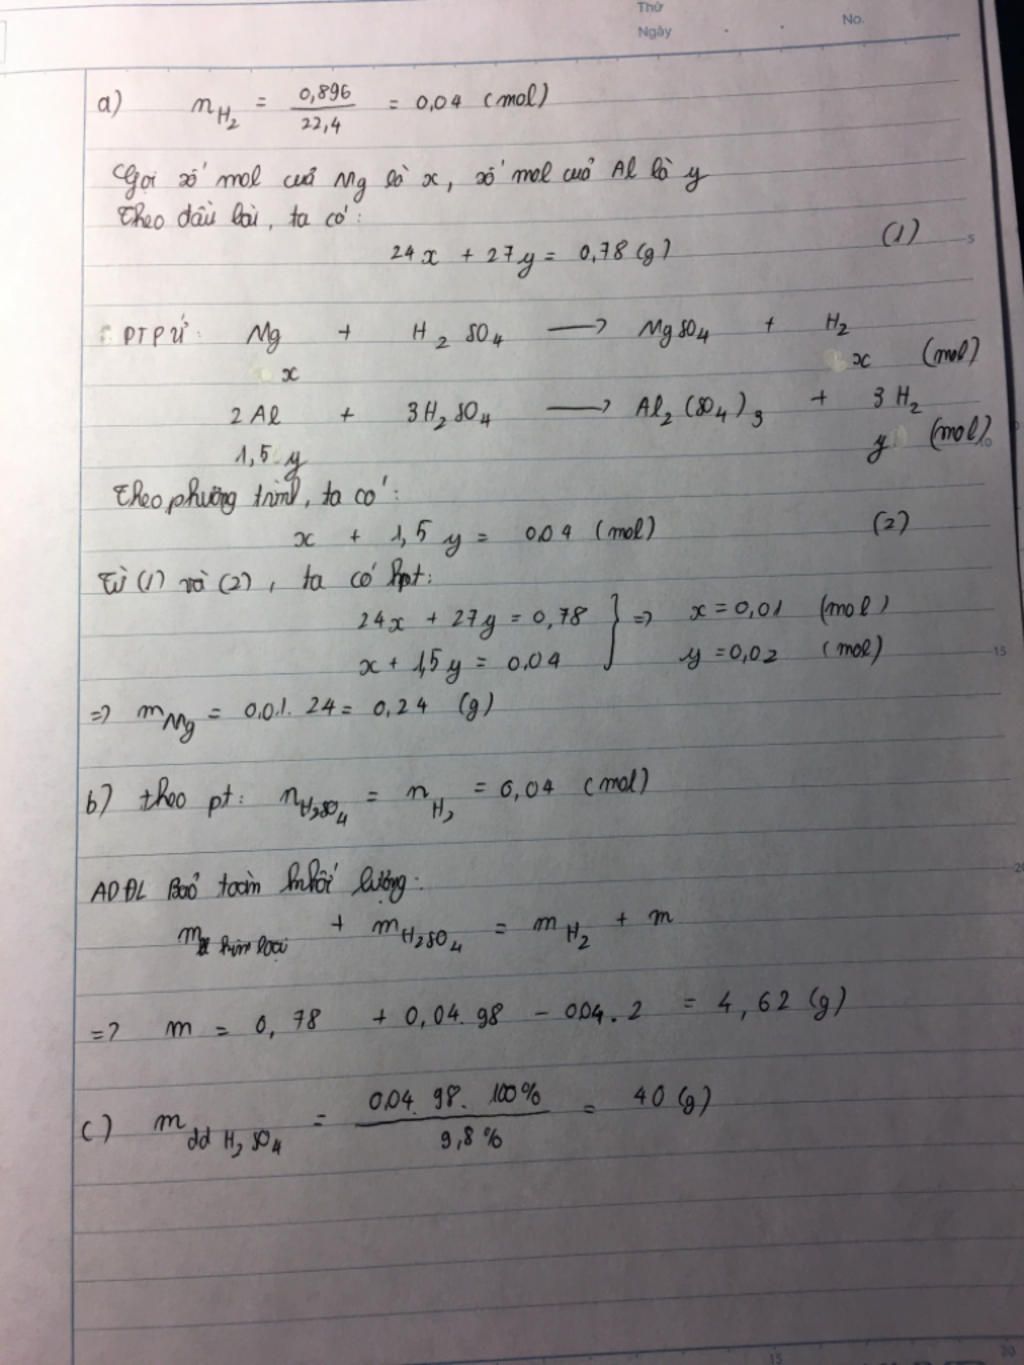 Thứ
Ngày
No.
a) n H₂ = 0,896 / 22,4 = 0,04 (mol)
Gọi số mol của Mg là x, số mol của Al là y
Theo đầu bài, ta có:
24x + 27y = 0,78 (g) (1)
5
PTPỨ: Mg + H₂SO₄ ⟶ MgSO₄ + H₂
x x (mol)
2Al + 3H₂SO₄ ⟶ Al₂(SO₄)₃ + 3H₂
1,5 y y (mol)
10
Theo phương trình, ta có:
x + 1,5 y = 0,04 (mol) (2)
Từ (1) và (2), ta có hpt:
24x + 27y = 0,78 } => x = 0,01 (mol)
x + 1,5y = 0,04 y = 0,02 (mol)
15
=> m Mg = 0,01. 24 = 0,24 (g)
b) theo pt: n H₂SO₄ = n H₂ = 0,04 (mol)
20
ADĐL Bảo toàn khối lượng:
m kim loại + m H₂SO₄ = m H₂ + m
=> m = 0,78 + 0,04. 98 - 0,04. 2 = 4,62 (g)
c) m dd H₂SO₄ = 0,04. 98. 100% / 9,8% = 40 (g)
15
20